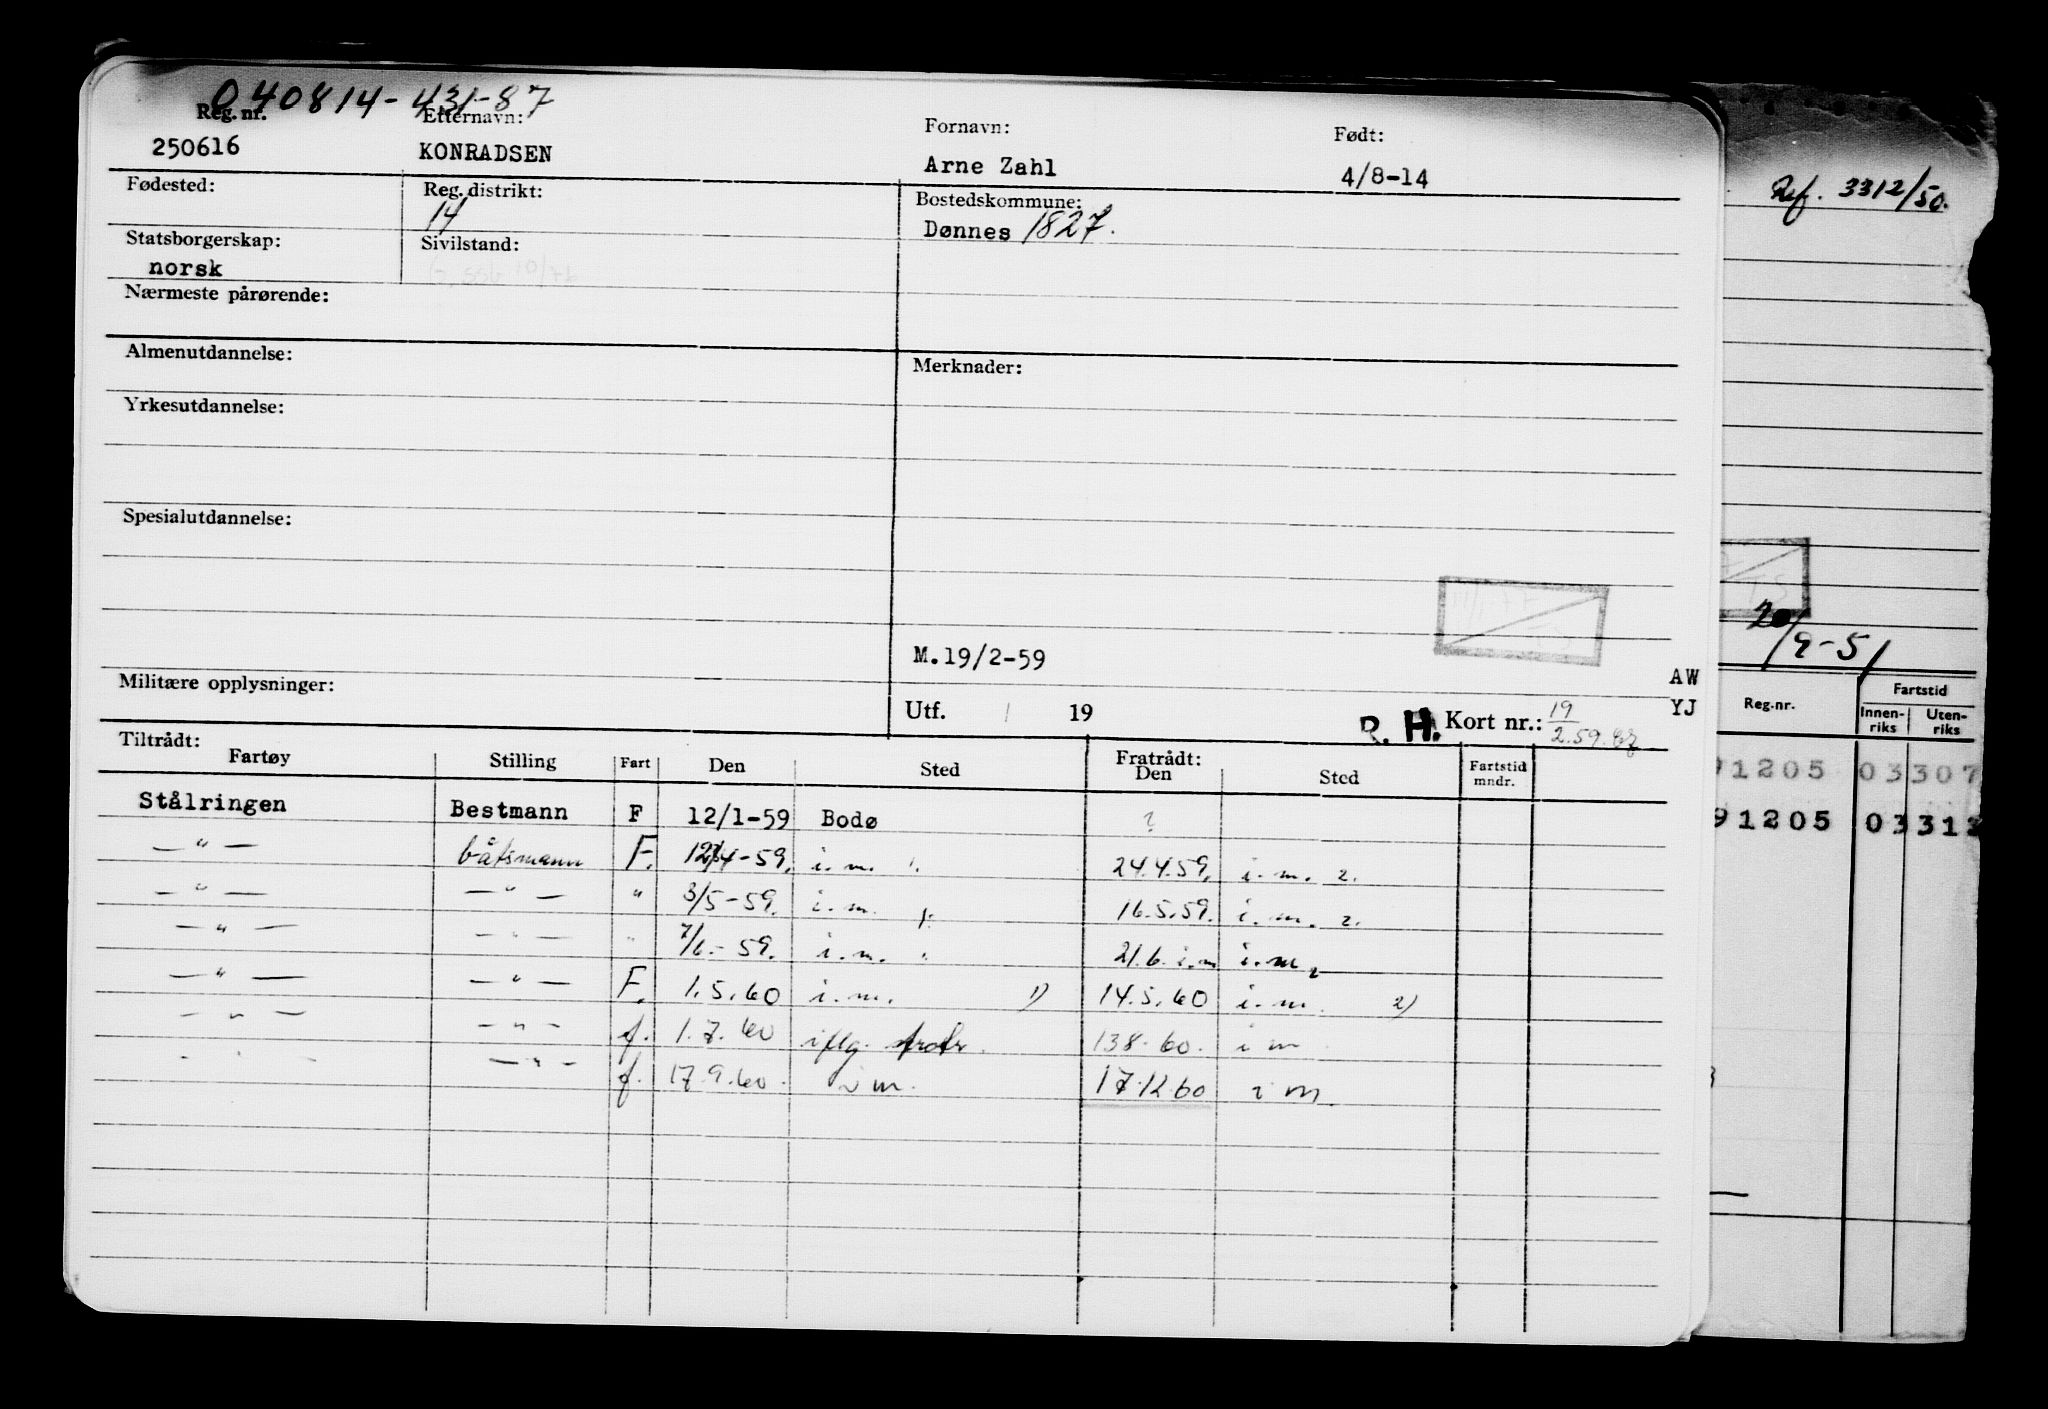 040814-431-87
Reg. nr. Etternavn: Fornavn: Født:
250616 KONRADSEN Arne Zahl 4/8-14
Fødested: Reg. distrikt: Bostedskommune:
14 Dønnes 1827.
Statsborgerskap: Sivilstand:
norsk
Nærmeste pårørende:
Almenutdannelse: Merknader:
Yrkesutdannelse:
Spesialutdannelse:
M.19/2-59
AW
Militære opplysninger: Utf. 19 R. H. Kort nr.: 19/2.59. YJ
Tiltrådt: Fratrådt:
Fartøy Stilling Fart Den Sted Den Sted Fartstid mndr.
Stålringen Bestmann F 12/1-59 Bodø ?
— " — båtsmann F. 12/4-59. i.m. 1. 24.4.59. i.m. 2.
— " — — " — " 3/5-59. i.m. 1. 16.5.59. i.m. 2.
— " — — " — " 7/6-59. i.m. 21.6. i.m i.m. 2
— " — — " — F. 1.5.60 i.m. 1) 14.5.60 i.m. 2)
— " — — " — f. 1.7.60 iflg. 138.60. i m
— " — — " — f. 17.9.60. i m. 17.12.60 i m.
Ref. 3312/50.
20/9-51
Reg.nr. Fartstid
Innenriks Utenriks
91205 03 307
91205 03 312